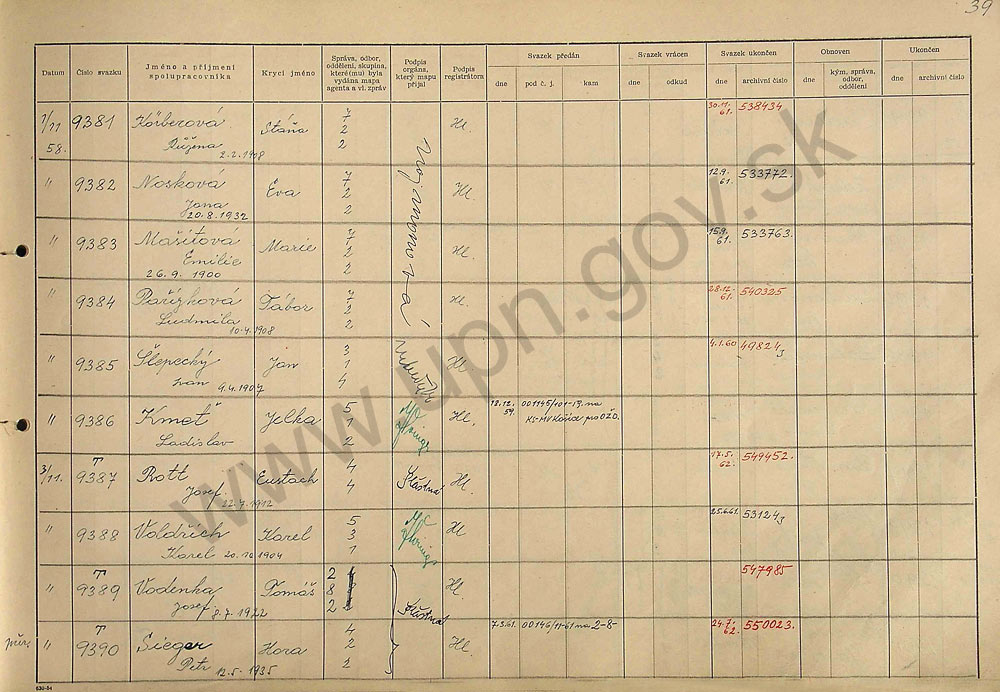 39
Datum Číslo svazku Jméno a příjmení spolupracovníka Krycí jméno Správa, odbor, oddělení, skupina, které(mu) byla vydána mapa agenta a vl. zpráv Podpis orgánu, který mapu přijal Podpis registrátora Svazek předán Svazek vrácen Svazek ukončen Obnoven Ukončen
dne pod č. j. kam dne odkud dne archivní číslo dne kým, správa, odbor, oddělení dne archivní číslo
1/11 58. 9381 Körberová Růžena 2.2.1908 Stáňa 7 2 2 Hl. 30.11. 61. 538434
" 9382 Nosková Jana 20.8.1932 Eva 7 2 2 Hl. 12.9. 61. 533772.
" 9383 Mašitová Emilie 26.9.1900 Marie 7 2 2 Hl. 15.9. 61. 533763.
" 9384 Pařízková Ludmila 10.4.1908 Tábor 7 2 2 Hl. 28.12. 61. 540325
" 9385 Šlepecký Ivan 9.4.1907 Jan 3 1 4 Hl. 4.1.60 49824,3
" 9386 Kmeť Ladislav Jelka 5 1 2 Hl. 18.12. 59. 001145/101-19. na KS-MV Košice pro OŽD.
3/11. T 9387 Rott Josef 22.7.1912 Eustach 4 4 Šťastná Hl. 17.5. 62. 549452.
" 9388 Voldřich Karel 20.10.1904 Karel 5 3 1 Hl 25.6.61. 53124,3
" T 9389 Vodenka Josef 8.7.1922 Tomáš 2 8 2 Šťastná Hl. 547985
" T 9390 Sieger Petr 12.5.1935 Hora 4 2 2 Hl. 7.3.61. 00146/11-61 na 2-8 24.7. 62. 550023.
www.upn.gov.sk